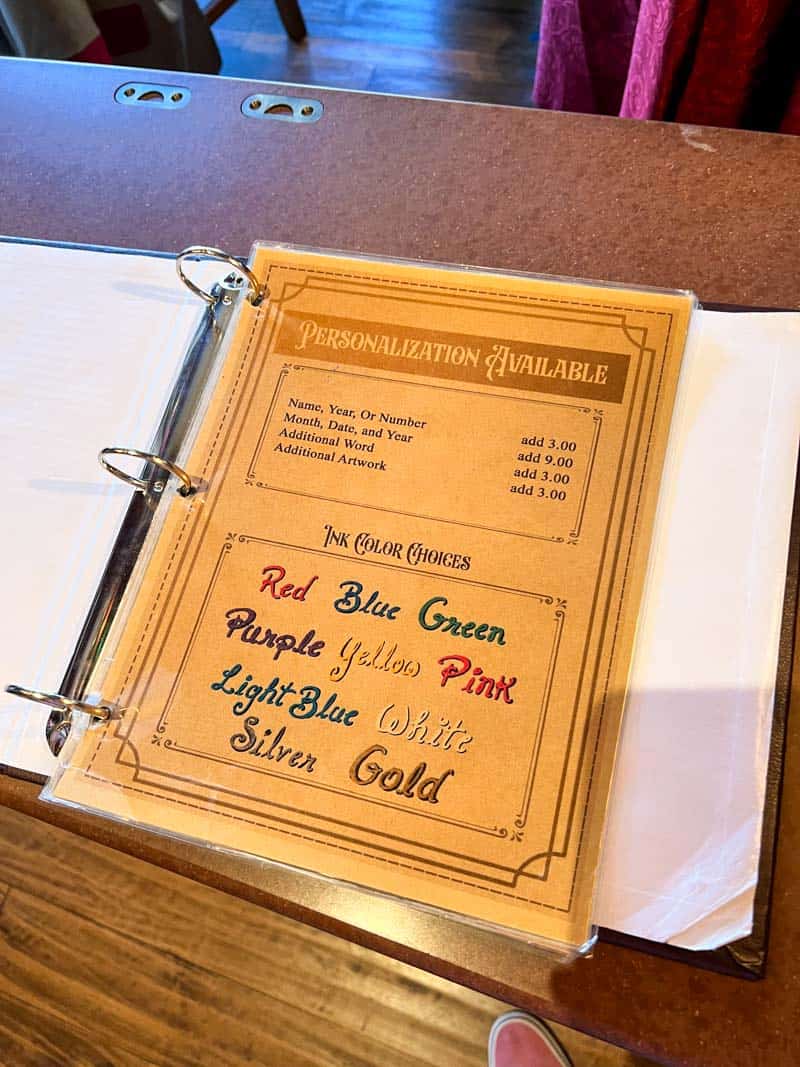 Personalization Available
Name, Year, Or Number add 3.00
Month, Date, and Year add 9.00
Additional Word add 3.00
Additional Artwork add 3.00
Ink Color Choices
Red Blue Green
Purple Yellow Pink
Light Blue White
Silver Gold